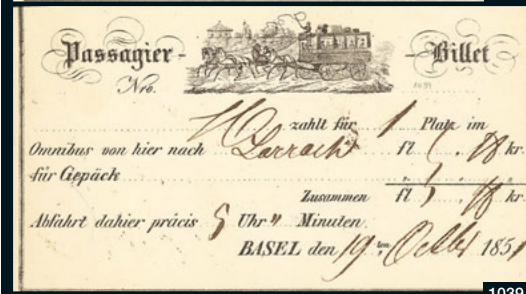 Passagier - - Billet
Nro.
zahlt für 1 Platz im
Omnibus von hier nach Lörrach fl . 18 kr.
für Gepäck
Zusammen fl . 18 kr.
Abfahrt dahier präcis 5 Uhr " Minuten
BASEL den 19 ten Octbr 185
1039